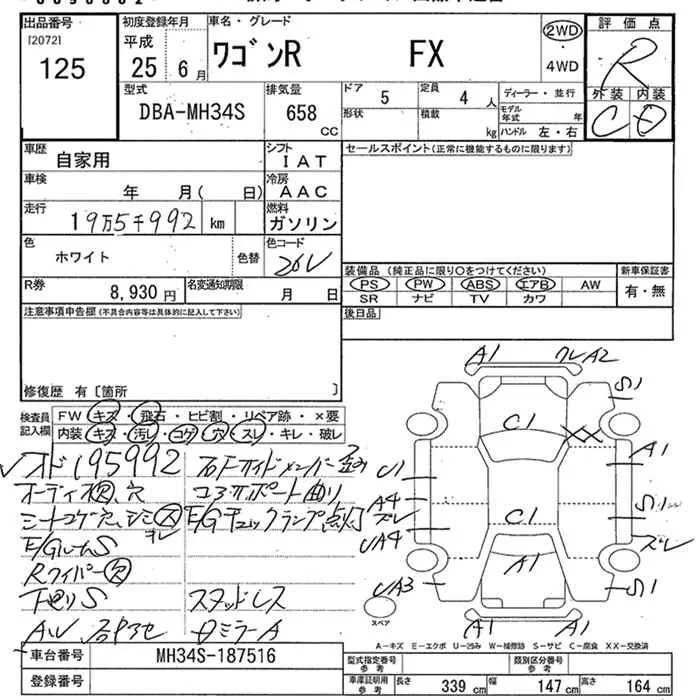 出品番号
[2072]
125
初度登録年月
平成
25 6 月
車名・グレード
ワゴンR FX
2WD
・
4WD
評価点
R
外装 内装
C D
型式
DBA-MH34S
排気量
658
CC
ドア 5
定員 4 人
ディーラー・並行
形状
積載 kg
モデル年式 年
ハンドル 左・右
車歴
自家用
シフト
IAT
セールスポイント(正常に機能するものに限ります)
車検
年 月( 日)
冷房
AAC
走行
19万5千992 km
燃料
ガソリン
色
ホワイト
色替
色コード
26U
装備品(純正品に限り〇をつけてください)
新車保証書
PS PW ABS エアB AW
有・無
SR ナビ TV カワ
R券
8,930 円
名変通知期限
月 日
後日品
注意事項申告欄(不具合内容等は具体的に記入して下さい)
修復歴 有 [箇所 ]
検査員記入欄
FW キズ・飛石・ヒビ割・リペア跡・×要
内装 キズ・汚レ・コゲ・穴・スレ・キレ・破レ
オド195992
オーディオ欠、穴
シートコゲ穴、シミ
ヨレ
E/GルームS
Rワイパー欠
下廻りS
コアサポート曲り
E/Gチェックランプ点灯
スタッドレス
A1 クレA2
S1
C1
XX
A1
U1
A4
ズレ
UA4
S1
C1
ズレ
A1
UA3
S1
A1 A1
スペア
A-キズ E-エクボ U-凹み W-補修跡 S-サビ C-腐食 XX-交換済
車台番号
MH34S-187516
登録番号
型式指定番号 参考
類別区分番号 参考
車庫証明用 参考
長さ 339 cm
幅 147 cm
高さ 164 cm